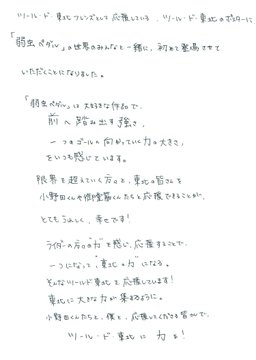 ツール・ド・東北フレンズとして応援している、ツール・ド・東北のポスターに
「弱虫ペダル」の世界のみんなと一緒に、初めて登場させて
いただくことになりました。
「弱虫ペダル」は大好きな作品で、
前へ踏み出す強さ、
一つのゴールへ向かっていく力の大きさ、
をいつも感じています。
限界を超えていく方々と、東北の皆さんを
小野田くんや御堂筋くんたちと応援できることが、
とてもうれしく、幸せです!
ライダーの方々の"力"を感じ、応援することで、
一つになって、"東北の力"になる。
そんなツールド東北を応援しています!
東北に大きな力が集まるように。
小野田くんたちと、僕と、応援してくださる皆さんで、
ツール・ド・東北に 力を!